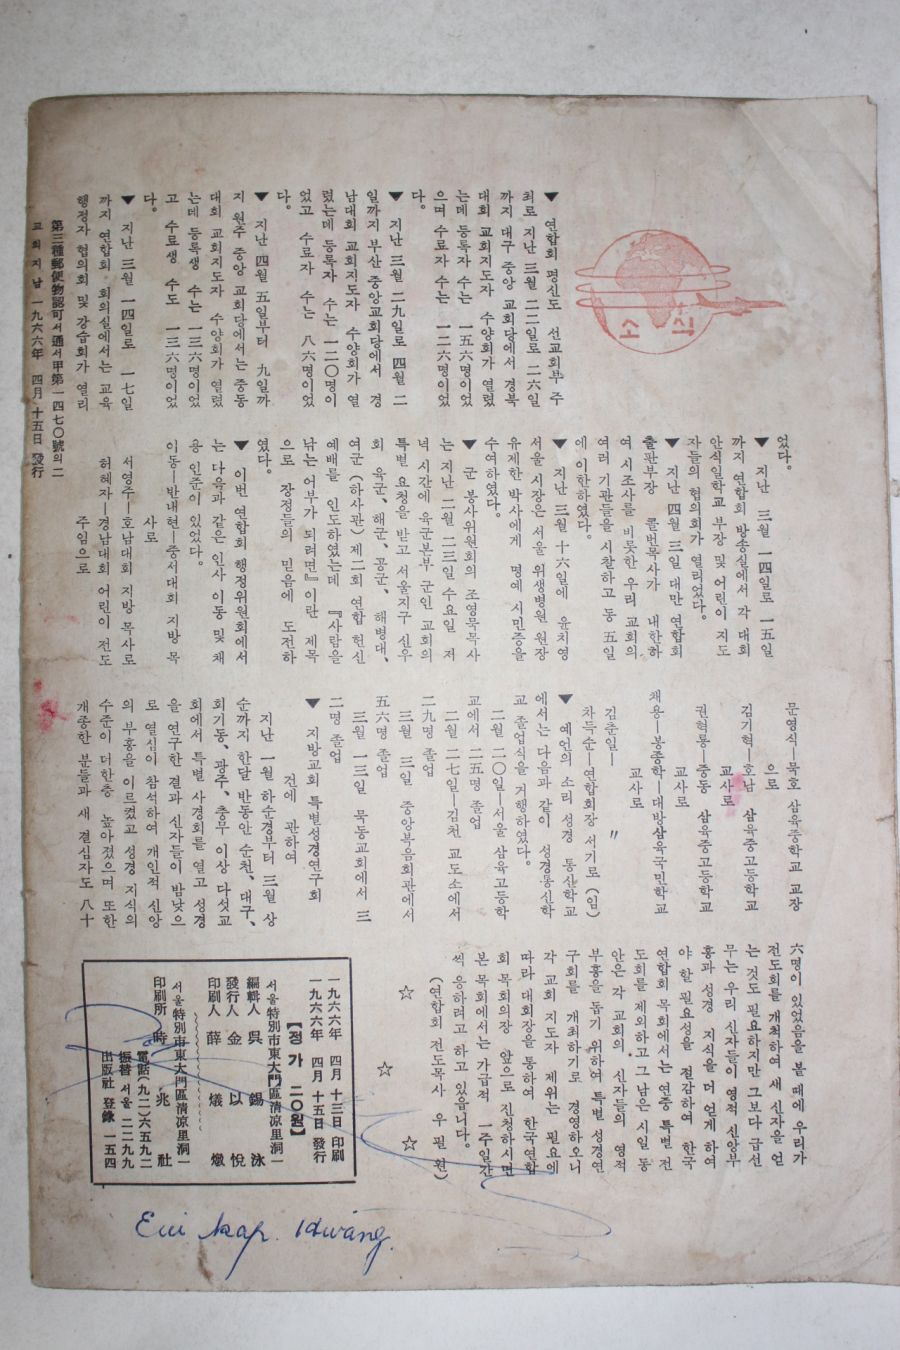 소식
▼ 연합회 명신도 선교회부 주
최로 지난 三월 二二일로 二六일
까지 대구 중앙 교회당에서 경북
대회 교회지도자 수양회가 열렸
는데 등록자 수는 一五六명이었
으며 수료자 수는 一二六명이었
다。
▼ 지난 三월 二九일로 四월 二
일까지 부산 중앙교회당에서 경
남대회 교회지도자 수양회가 열
렸는데 등록자 수는 一二○명이
었고 수료자 수는 八六명이었
다。
▼ 지난 四월 五일부터 九일까
지 원주 중앙 교회당에서는 중동
대회 교회지도자 수양회가 열렸
는데 등록생 수는 一三六명이었
고 수료생 수도 一三六명이었
다。
▼ 지난 三월 一四일로 一七일
까지 연합회 회의실에서는 교육
행정자 협의회 및 강습회가 열리
었다。
▼ 지난 三월 一四일로 一五일
까지 연합회 방송실에서 각 대회
안식일학교 부장 및 어린이 지도
자들의 협의회가 열리었다。
▼ 지난 四월 三일 대만 연합회
출판부장 콜번목사가 내한하
여 시조사를 비롯한 우리 교회의
여러 기관들을 시찰하고 동 五일
에 이한하였다。
▼ 지난 三월 十六일에 윤치영
서울 시장은 서울 위생병원 원장
유제한 박사에게 명예 시민증을
수여하였다。
▼ 군 봉사위원회의 조영묵목사
는 지난 二월 二三일 수요일 저
녁 시간에 육군본부 군인 교회의
특별 요청을 받고 서울지구 신우
회 육군、해군、공군、해병대、
여군 (하사관) 제二회 연합 헌신
예배를 인도하였는데 『사람을
낚는 어부가 되려면』이란 제목
으로 장정들의 믿음에 도전하
였다。
▼ 이번 연합회 행정위원회에서
는 다음과 같은 인사 이동 및 채
용 인준이 있었다。
이동—반내현—중서대회 지방 목
사로
서영주—호남대회 지방 목사로
허혜자—경남대회 어린이 전도
주임으로
문영석—묵호 삼육중학교 교장
으로
김기혁—호남 삼육중고등학교
교사로
권혁룡—중동 삼육중고등학교
교사로
채용—봉종학—대방삼육국민학교
교사로
김춘일— 〃
차득순—연합회장 서기로 (임)
▼ 예언의 소리 성경 통신학교
에서는 다음과 같이 성경통신학
교 졸업식을 거행하였다。
二월 二○일—서울 삼육고등학
교에서 二五명 졸업
二월 二七일—김천 교도소에서
二九명 졸업
三월 三일 중앙복음회관에서
五六명 졸업
三월 一三일 묵동교회에서 三
二명 졸업
▼ 지방교회 특별성경연구회
건에 관하여
지난 一월 하순경부터 三월 상
순까지 한달 반동안 순천、대구、
회기동、광주、충무 이상 다섯교
회에서 특별 사경회를 열고 성경
을 연구한 결과 신자들이 밤낮으
로 열심이 참석하여 개인적 신앙
의 부흥을 이르켰고 성경 지식의
수준이 더한층 높아졌으며 또한
개종한 분들과 새 결심자도 八十
六명이 있었음을 볼 때에 우리가
전도회를 개최하여 새 신자을 얻
는 것도 필요하지만 그보다 급선
무는 우리 신자들이 영적 신앙부
흥과 성경 지식을 더 얻게 하여
야 할 필요성을 절감하여 한국
연합회 목회에서는 연중 특별 전
도회를 제외하고 그 남은 시일 동
안은 각 교회의 신자들의 영적
부흥을 돕기 위하여 특별 성경연
구회를 개최하기로 경영하오니
각 교회 지도자 제위는 필요에
따라 대회장을 통하여 한국연합
회 목회의장 앞으로 진청하시면
본 목회에서는 가급적 一주일간
씩 응하려고 하고 있읍니다。
(연합회 전도목사 우 필 원)
☆ ☆ ☆
一九六六年 四月 十三日 印刷
一九六六年 四月 十五日 發行
【정가 二○원】
서울特別市東大門區淸凉里洞一
編輯人 吳 錫 泳
發行人 金 以 悅
印刷人 薛 燨 燉
서울特別市東大門區淸凉里洞一
印刷所 時 兆 社
電話(九二)六五九二
振替 서울 二二九九
出版社 登錄 一五四
第三種郵便物認可서通서甲第一四七○號의二
교회지남 一九六六年 四月 十五日 發行
Eui kap. Hwang.